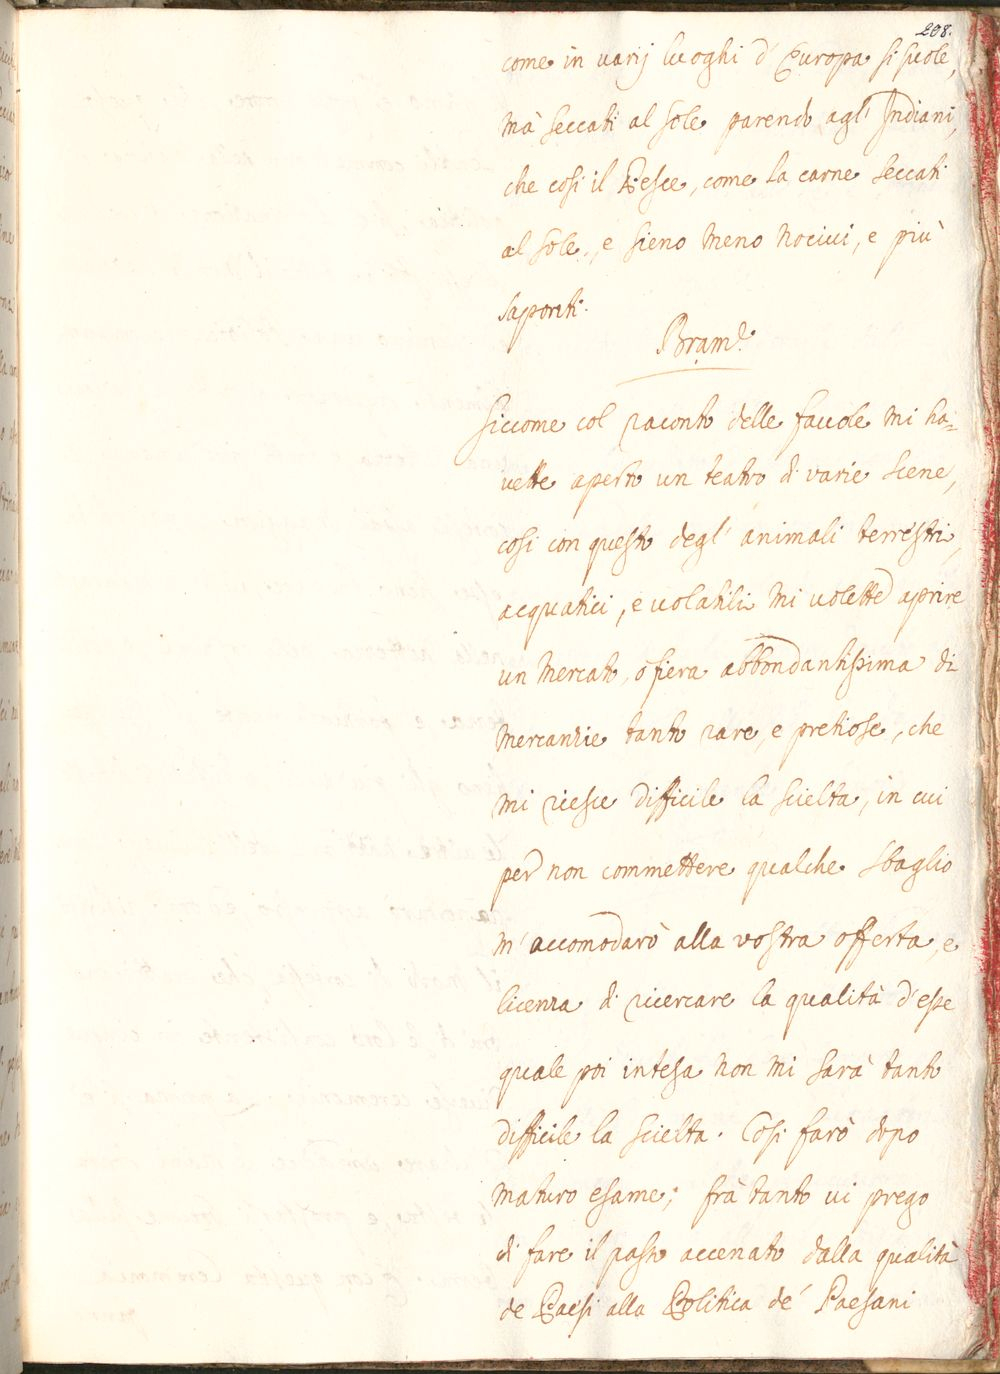 208.
come in varij luoghi d'Europa si suole,
mà seccati al sole parendo agl'Indiani,
che cosi il Pesce, come la carne seccati
al sole, e sieno meno nocivi, e più
saporiti.
Bram.
Siccome col raconto delle favole mi ha=
vette aperto un teatro di varie scene,
cosi con questo degl'animali terrestri,
acquatici, e volatili mi volette aprire
un mercato, o fiera abbondantissima di
mercanzie tanto rare, e pretiose, che
mi riesce difficile la scielta, in cui
per non commettere qualche sbaglio
m'accomodarò alla vostra offerta, e
licenza di ricercare la qualità d'esse
quale poi intesa non mi sarà tanto
difficile la scielta. Cosi farò dopo
maturo esame; frà tanto vi prego
di fare il passo accenato dalla qualità
de Paesi alla Politica de' Paesani